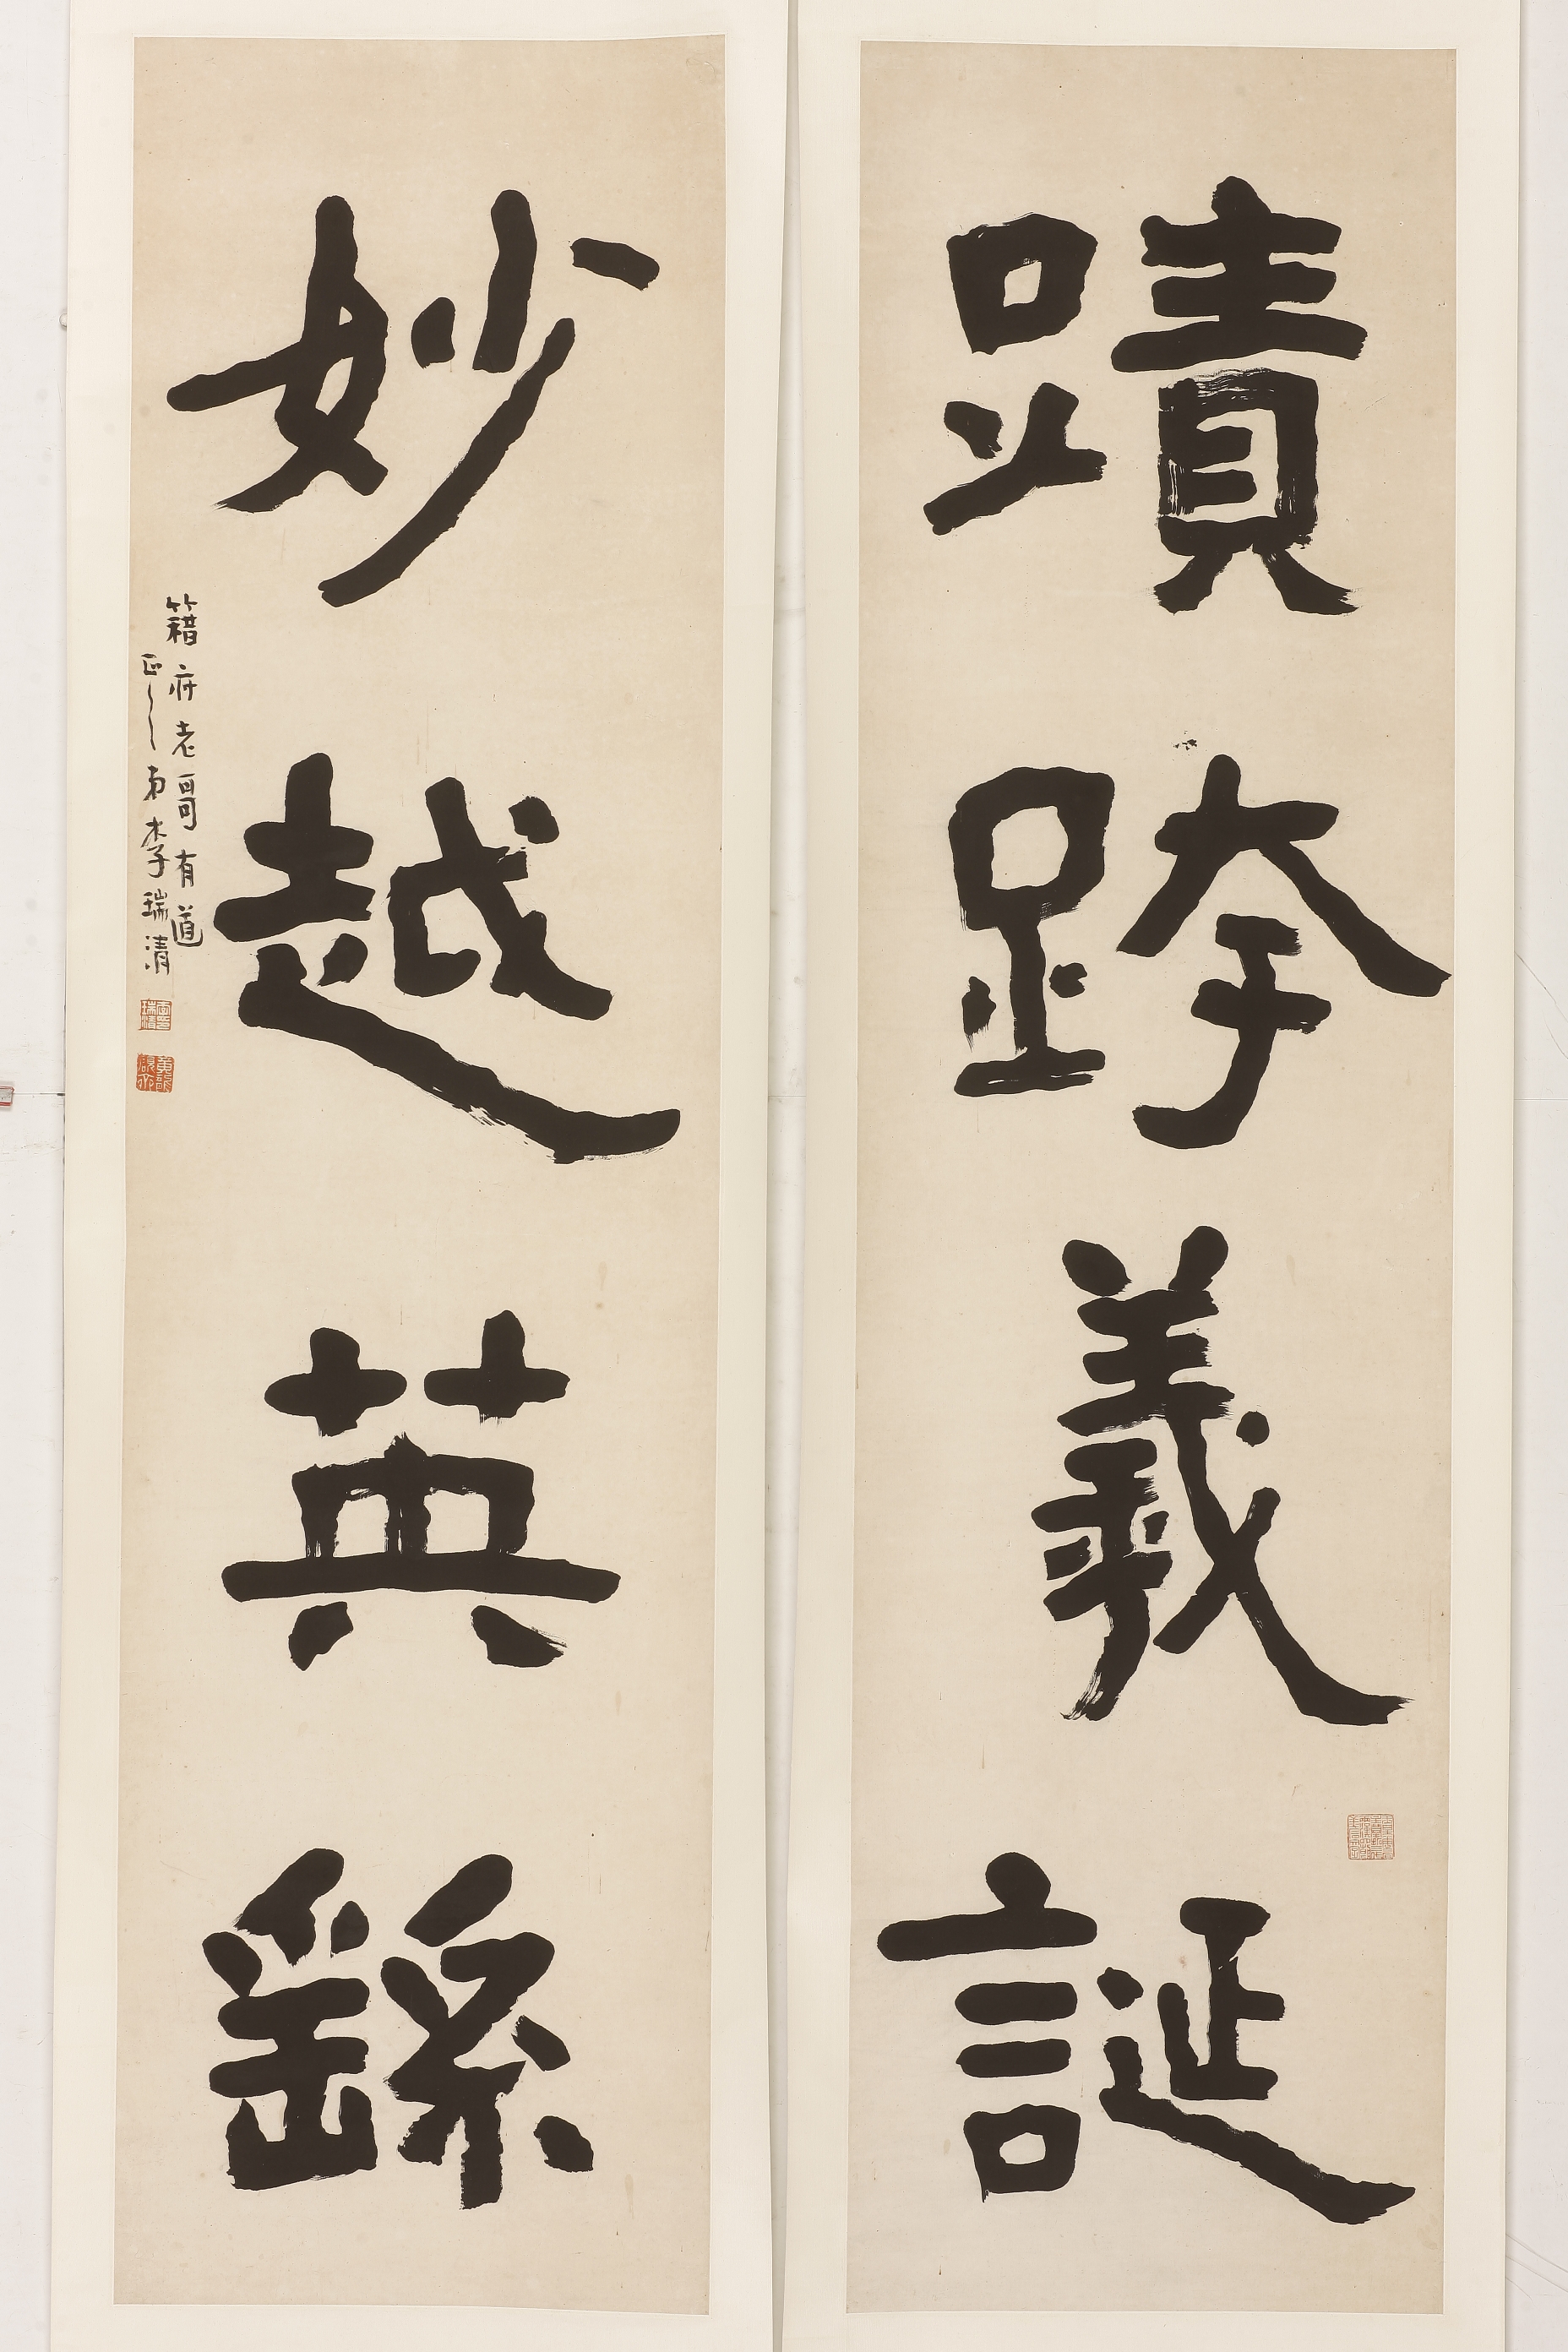 蹟跨羲誕
妙越英繇
籍 老哥有道
正之弟李瑞清